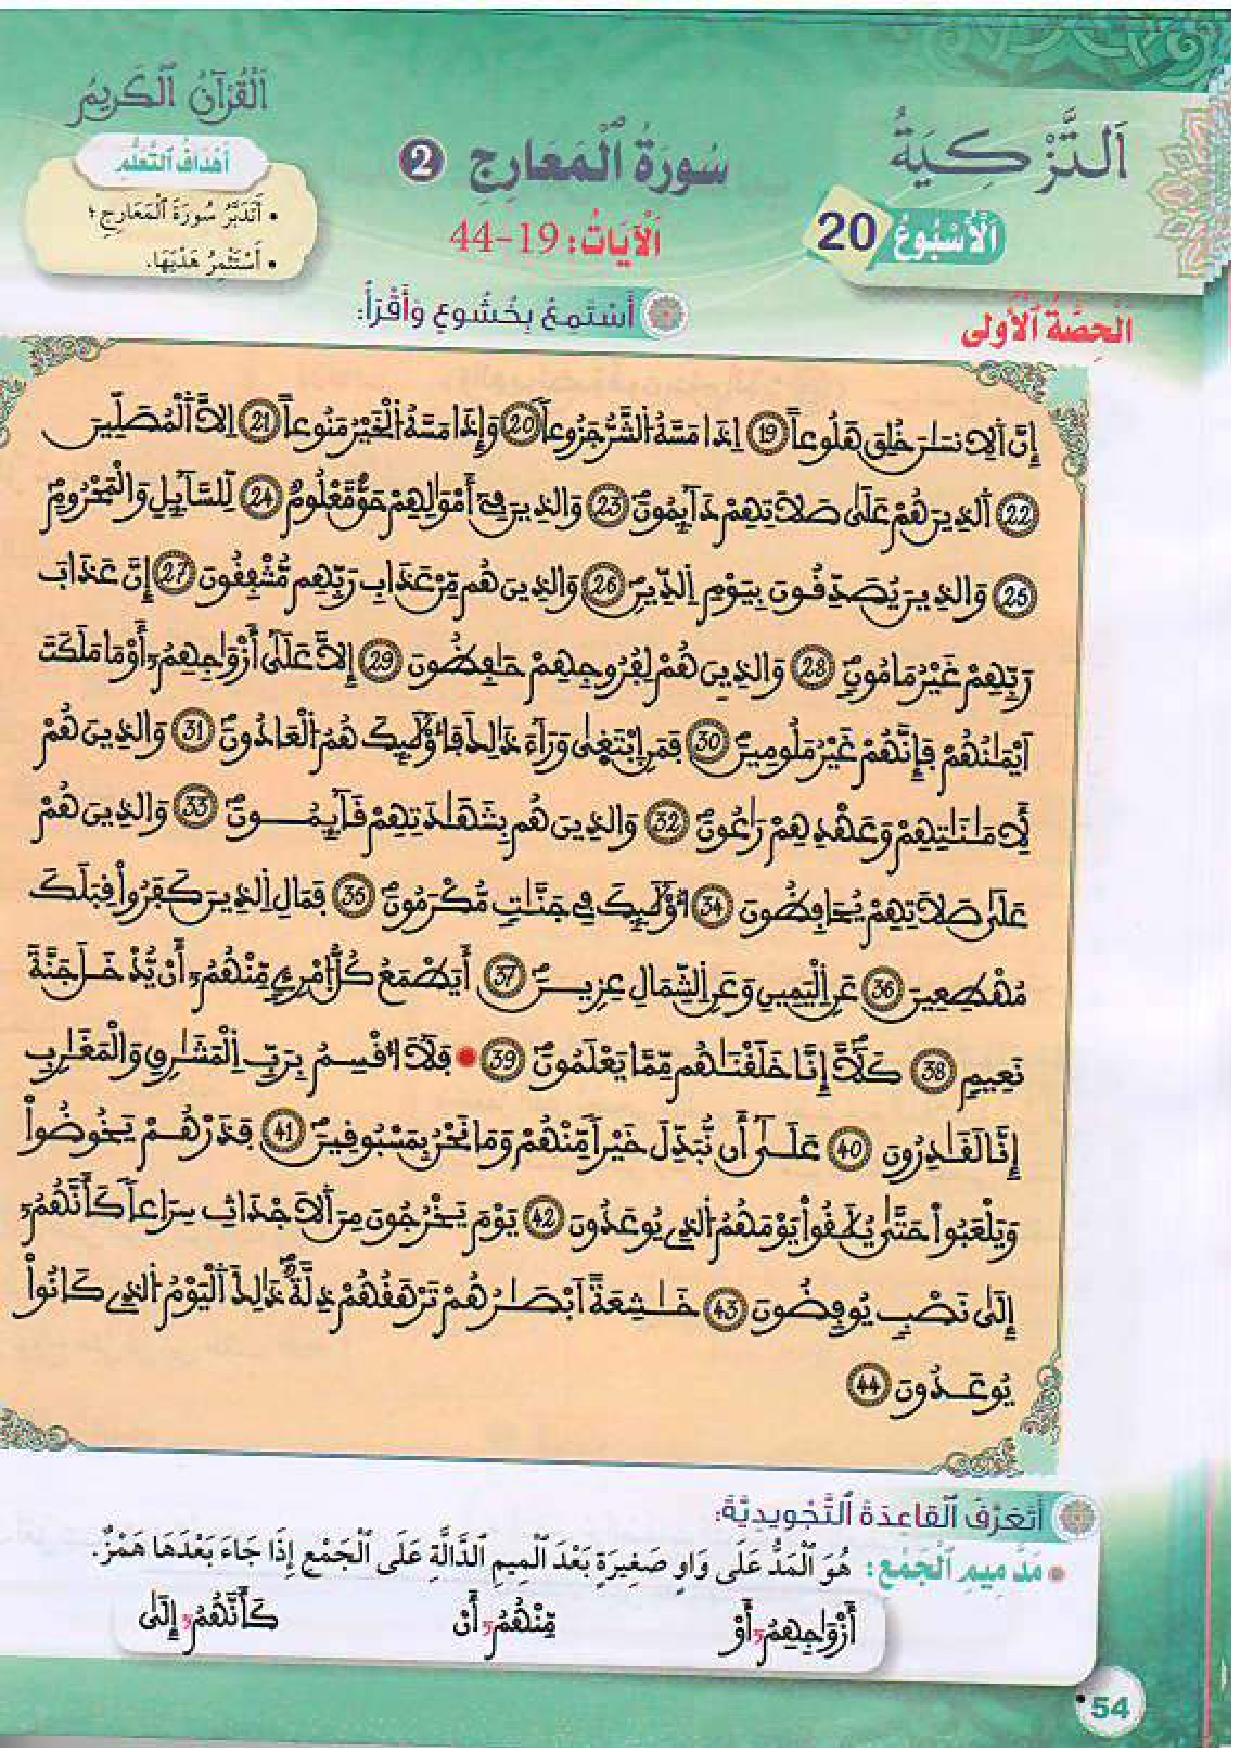 اَلْقُرْآنُ اُلْكَرِيمُ
اَلتَّزْكِيَةُ
سُورَةُ اُلْمَعَارِجِ 2
اَلْآيَاتُ: 19-44
اَلْأُسْبُوعُ 20
أَهْدَافُ اُلتَّعَلُّمِ
• أَتَدَبَّرُ سُورَةَ اُلْمَعَارِجِ؛
• أَسْتَثْمِرُ هَدْيَهَا.
اَلْحِصَّةُ اُلْأُولَى
أَسْتَمِعُ بِخُشُوعٍ وَأَقْرَأُ:
إِنَّ اَلِانسَٰنَ خُلِقَ هَلُوعاً 19 اِذَا مَسَّهُ اُلشَّرُّ جَزُوعاً 20 وَإِذَا مَسَّهُ اُلْخَيْرُ مَنُوعاً 21 اِلَّا اَلْمُصَلِّينَ
22 اَلذِينَ هُمْ عَلَىٰ صَلَاتِهِمْ دَآئِمُونَ 23 وَالذِينَ فِےٓ أَمْوَٰلِهِمْ حَقٌّ مَّعْلُومٌ 24 لِّلسَّآئِلِ وَالْمَحْرُومِ
25 وَالذِينَ يُصَدِّقُونَ بِيَوْمِ اِلدِّينِ 26 وَالذِينَ هُم مِّنْ عَذَابِ رَبِّهِم مُّشْفِقُونَ 27 إِنَّ عَذَابَ
رَبِّهِمْ غَيْرُ مَامُونٍ 28 وَالذِينَ هُمْ لِفُرُوجِهِمْ حَٰفِظُونَ 29 إِلَّا عَلَىٰٓ أَزْوَٰجِهِمُۥٓ أَوْ مَا مَلَكَتَ
اَيْمَٰنُهُمْ فَإِنَّهُمْ غَيْرُ مَلُومِينَ 30 فَمَنِ اِبْتَغَىٰ وَرَآءَ ذَٰلِكَ فَأُوْلَٰٓئِكَ هُمُ اُلْعَادُونَ 31 وَالذِينَ هُمْ
لِأَمَٰنَٰتِهِمْ وَعَهْدِهِمْ رَٰعُونَ 32 وَالذِينَ هُم بِشَهَٰدَتِهِمْ قَآئِمُونَ 33 وَالذِينَ هُمْ
عَلَىٰ صَلَاتِهِمْ يُحَافِظُونَ 34 أُوْلَٰٓئِكَ فِے جَنَّٰتٍ مُّكْرَمُونَ 35 فَمَالِ اِلذِينَ كَفَرُواْ قِبَلَكَ
مُهْطِعِينَ 36 عَنِ اِلْيَمِينِ وَعَنِ اِلشِّمَالِ عِزِينَ 37 أَيَطْمَعُ كُلُّ اُمْرِےٕٖ مِّنْهُمُۥٓ أَنْ يُّدْخَلَ جَنَّةَ
نَعِيمٍ 38 كَلَّآ إِنَّا خَلَقْنَٰهُم مِّمَّا يَعْلَمُونَ 39 • فَلَآ أُقْسِمُ بِرَبِّ اِلْمَشَٰرِقِ وَالْمَغَٰرِبِ
إِنَّا لَقَٰدِرُونَ 40 عَلَىٰٓ أَن نُّبَدِّلَ خَيْراً مِّنْهُمْ وَمَا نَحْنُ بِمَسْبُوقِينَ 41 فَذَرْهُمْ يَخُوضُواْ
وَيَلْعَبُواْ حَتَّىٰ يُلَٰقُواْ يَوْمَهُمُ اُلذِے يُوعَدُونَ 42 يَوْمَ يَخْرُجُونَ مِنَ اَلَاجْدَاثِ سِرَاعاً كَأَنَّهُمُۥٓ
إِلَىٰ نَصْبٍ يُوفِضُونَ 43 خَٰشِعَةً اَبْصَٰرُهُمْ تَرْهَقُهُمْ ذِلَّةٌ ذَٰلِكَ اَلْيَوْمُ اُلذِے كَانُواْ
يُوعَدُونَ 44
أَتَعَرَّفُ اُلْقَاعِدَةَ اُلتَّجْوِيدِيَّةَ:
• مَدُّ مِيمِ اِلْجَمْعِ: هُوَ اَلْمَدُّ عَلَى وَاوٍ صَغِيرَةٍ بَعْدَ اَلْمِيمِ اِلدَّالَّةِ عَلَى اَلْجَمْعِ إِذَا جَاءَ بَعْدَهَا هَمْزٌ.
أَزْوَٰجِهِمُۥٓ أَوْ مِّنْهُمُۥٓ أَنْ كَأَنَّهُمُۥٓ إِلَىٰ
54